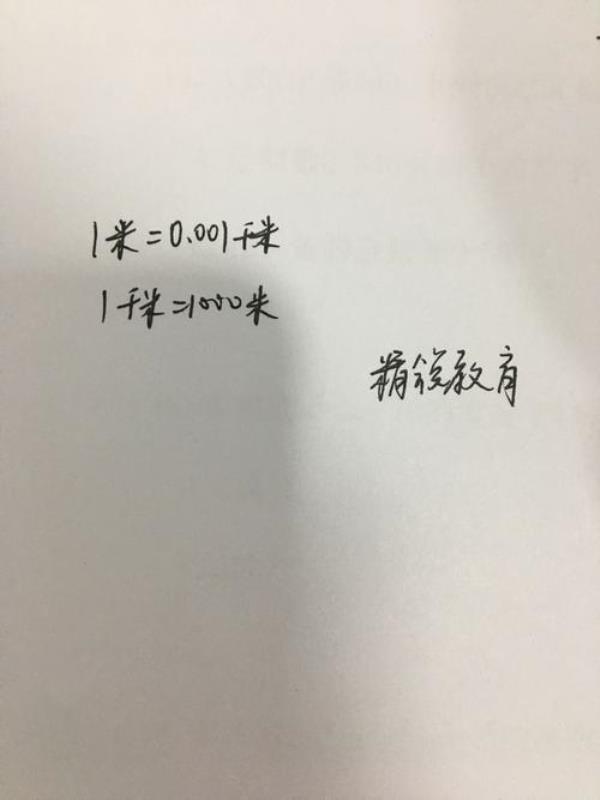 1米=0.001千米
1千米=1000米
精锐教育